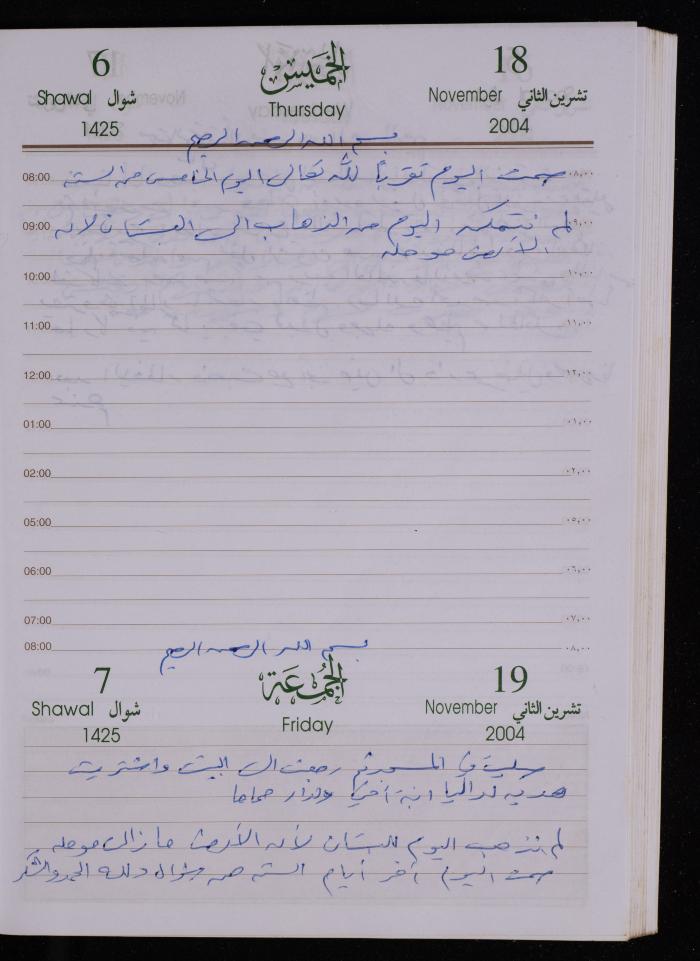 6 الخميس 18
Shawal شوال Thursday November تشرين الثاني
1425 2004
بسم الله الرحمن الرحيم
08:00 صمت اليوم تقرباً لله تعالى اليوم الخامس من الستة ٠٨,٠٠
09:00 لم نتمكن اليوم من الذهاب الى البستان لأنه ٠٩,٠٠
الأرض موحله
10:00 ١٠,٠٠
11:00 ١١,٠٠
12:00 ١٢,٠٠
01:00 ٠١,٠٠
02:00 ٠٢,٠٠
05:00 ٠٥,٠٠
06:00 ٠٦,٠٠
07:00 ٠٧,٠٠
08:00 بسم الله الرحمن الرحيم ٠٨,٠٠
7 الجمعة 19
Shawal شوال Friday November تشرين الثاني
1425 2004
صليت في المسجد ثم رجعت الى البيت واشتريت
هديه لداليا ابنة أخي
لم نذهب اليوم للبستان لأنه الأرض ما زالت موحله
صمت اليوم آخر أيام الستة من شوال ولله الحمد والشكر